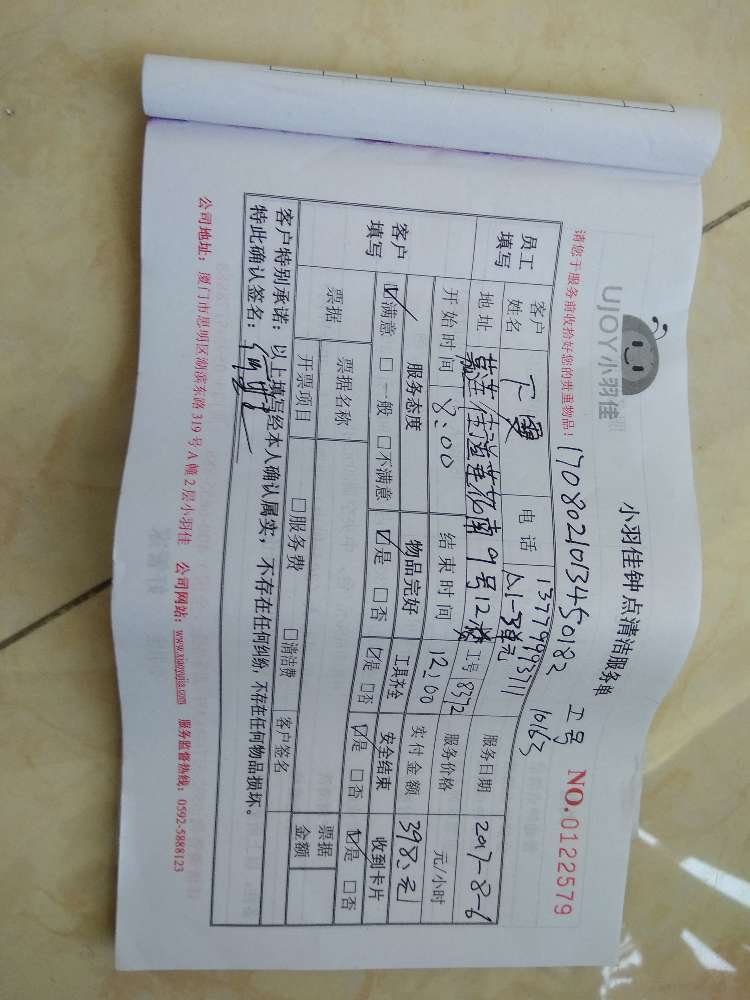 UJOY小羽佳
小羽佳钟点清洁服务单
请您于服务前收拾好您的贵重物品！
1708021013450182 工号 10163
NO.0122579
员工填写 客户姓名 电话 13779993111 服务日期 2017-8-6
地址 莲 9号12 1-3单元 工号 8372 服务价格 元/小时
开始时间 8:00 结束时间 12:00 实付金额 398.元
客户填写 服务态度 物品完好 工具齐全 安全结束 收到卡片
☑满意 □一般 □不满意 ☑是 □否 ☑是 □否 ☑是 □否 ☑是 □否
票据 票据名称 □服务费 □清洁费 票据金额
开票项目 客户签名
客户特别承诺：以上填写经本人确认属实，不存在任何纠纷，不存在任何物品损坏。
特此确认签名：
公司地址：厦门市思明区湖滨东路319号A幢2层小羽佳 公司网站：www.xiaoyujia.com 服务监督热线：0592-5888123